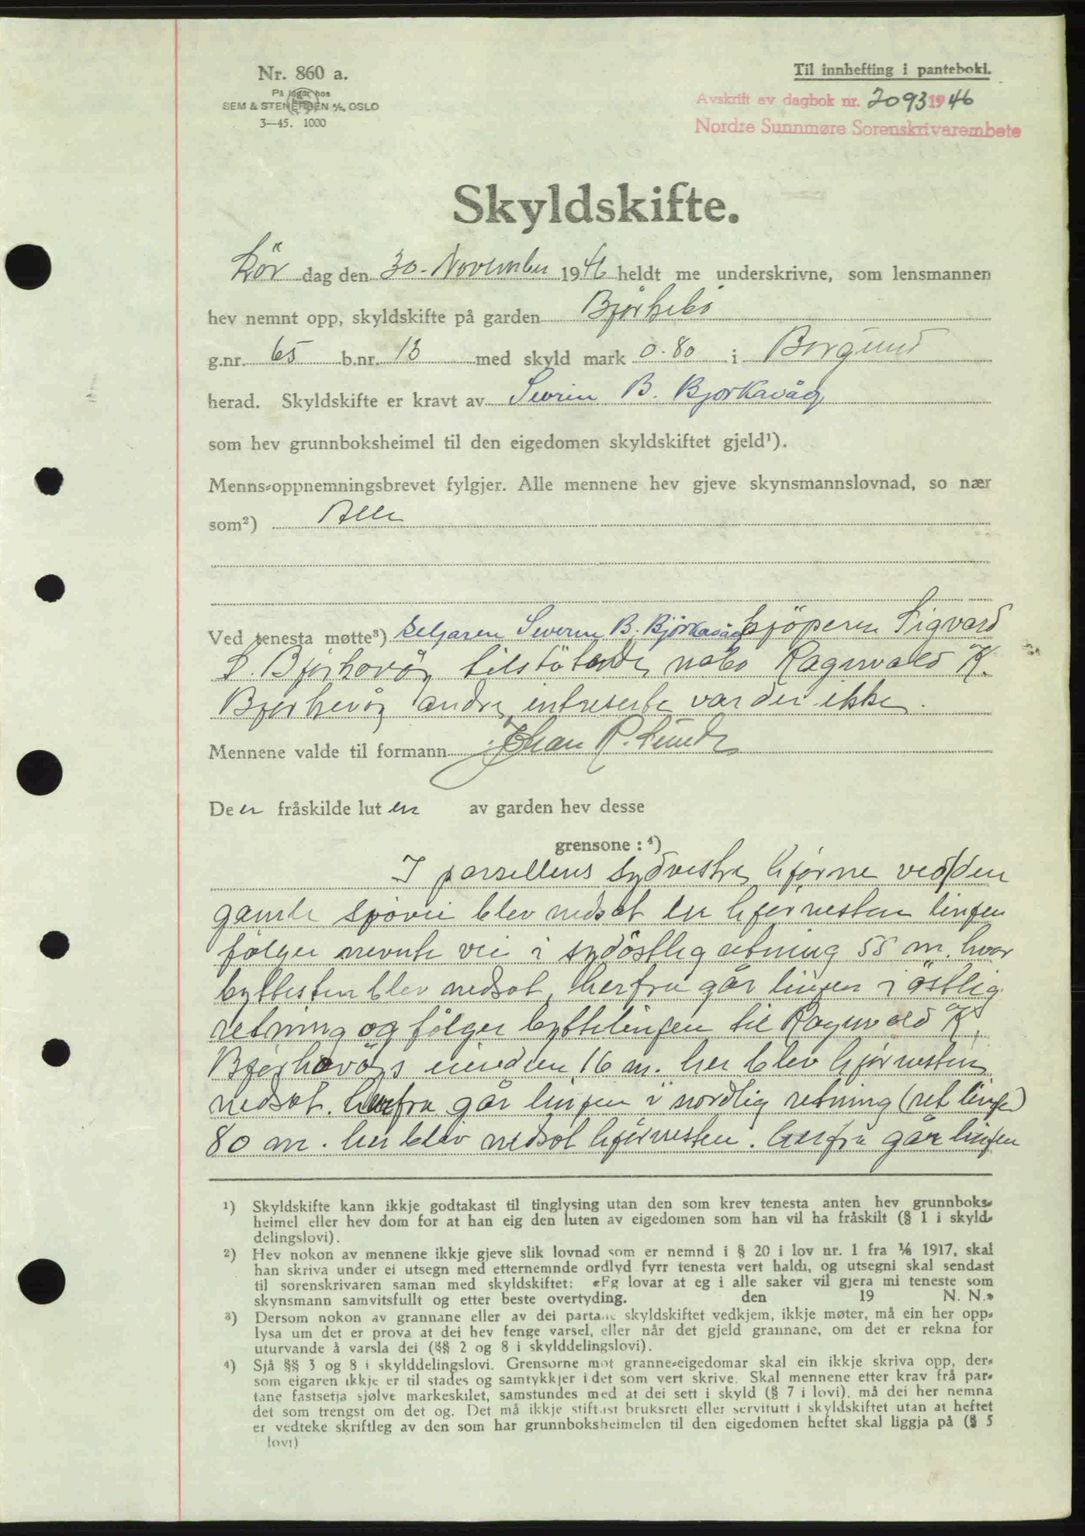 Nr. 860 a.
På lager hos
SEM & STENERSEN A/S, OSLO
3—45. 1000
Til innhefting i panteboki.
Avskrift av dagbok nr. 2093 1946
Nordre Sunnmøre Sorenskrivarembete
Skyldskifte.
Lör dag den 30. November 1946 heldt me underskrivne, som lensmannen
hev nemnt opp, skyldskifte på garden Björkebö
g.nr. 65 b.nr. 13 med skyld mark 0.80 i Borgund
herad. Skyldskifte er kravt av Sevrin B. Bjørkavåg
som hev grunnboksheimel til den eigedomen skyldskiftet gjeld¹).
Menns-oppnemningsbrevet fylgjer. Alle mennene hev gjeve skynsmannslovnad, so nær
som²) Alle
Ved tenesta møtte³) Seljaren Severin B. Bjørkavåg kjöperen Sigvard
S. Bjørkavåg tilstötende nabo Ragnvald K.
Bjørkevåg andre intreserte var der ikke.
Mennene valde til formann Johan P. Sunde
De en fråskilde lut en av garden hev desse
grensone: ⁴)
I parsellens sydvestre hjørne ved den
gamle vei blev nedsat en hjørnesten linjen
følger nevnte vei i sydöstlig retning 55 m. hvor
byttesten blev nedsat, herfra går linjen i östlig
retning og følger byttelinjen til Ragnvald K.
Bjørkavågs eiendom 16 m. her blev hjørnesten
nedsat. herfra går linjen i nordlig retning (ret linje)
80 m. her blev nedsat hjørnesten. herfra går linjen
¹) Skyldskifte kann ikkje godtakast til tinglysing utan den som krev tenesta anten hev grunnboks-
heimel eller hev dom for at han eig den luten av eigedomen som han vil ha fråskilt (§ 1 i skyld-
delingslovi).
²) Hev nokon av mennene ikkje gjeve slik lovnad som er nemnd i § 20 i lov nr. 1 fra 1/6 1917, skal
han skriva under ei utsegn med etternemnde ordlyd fyrr tenesta vert haldi, og utsegni skal sendast
til sorenskrivaren saman med skyldskiftet: «Eg lovar at eg i alle saker vil gjera mi teneste som
skynsmann samvitsfullt og etter beste overtyding. den 19 N. N.»
³) Dersom nokon av grannane eller av dei partane skyldskiftet vedkjem, ikkje møter, må ein her opp-
lysa um det er prova at dei hev fenge varsel, eller når det gjeld grannane, om det er rekna for
uturvande å varsla dei (§§ 2 og 8 i skylddelingslovi).
⁴) Sjå §§ 3 og 8 i skylddelingslovi. Grensorne mot granne-eigedomar skal ein ikkje skriva opp, der-
som eigaren ikkje er til stades og samtykkjer i det som vert skrive. Skal mennene etter krav frå par-
tane fastsetja sjølve markeskilet, samstundes med at dei sett i skyld (§ 7 i lovi), må dei her nemna
det som trengst om det og. Det må ikkje stiftast bruksrett eller servitutt i skyldskiftet utan at heftet
er vedteke skriftleg av den som har grunnboksheimelen til den eigedomen heftet skal liggja på (§ 5
lovi)